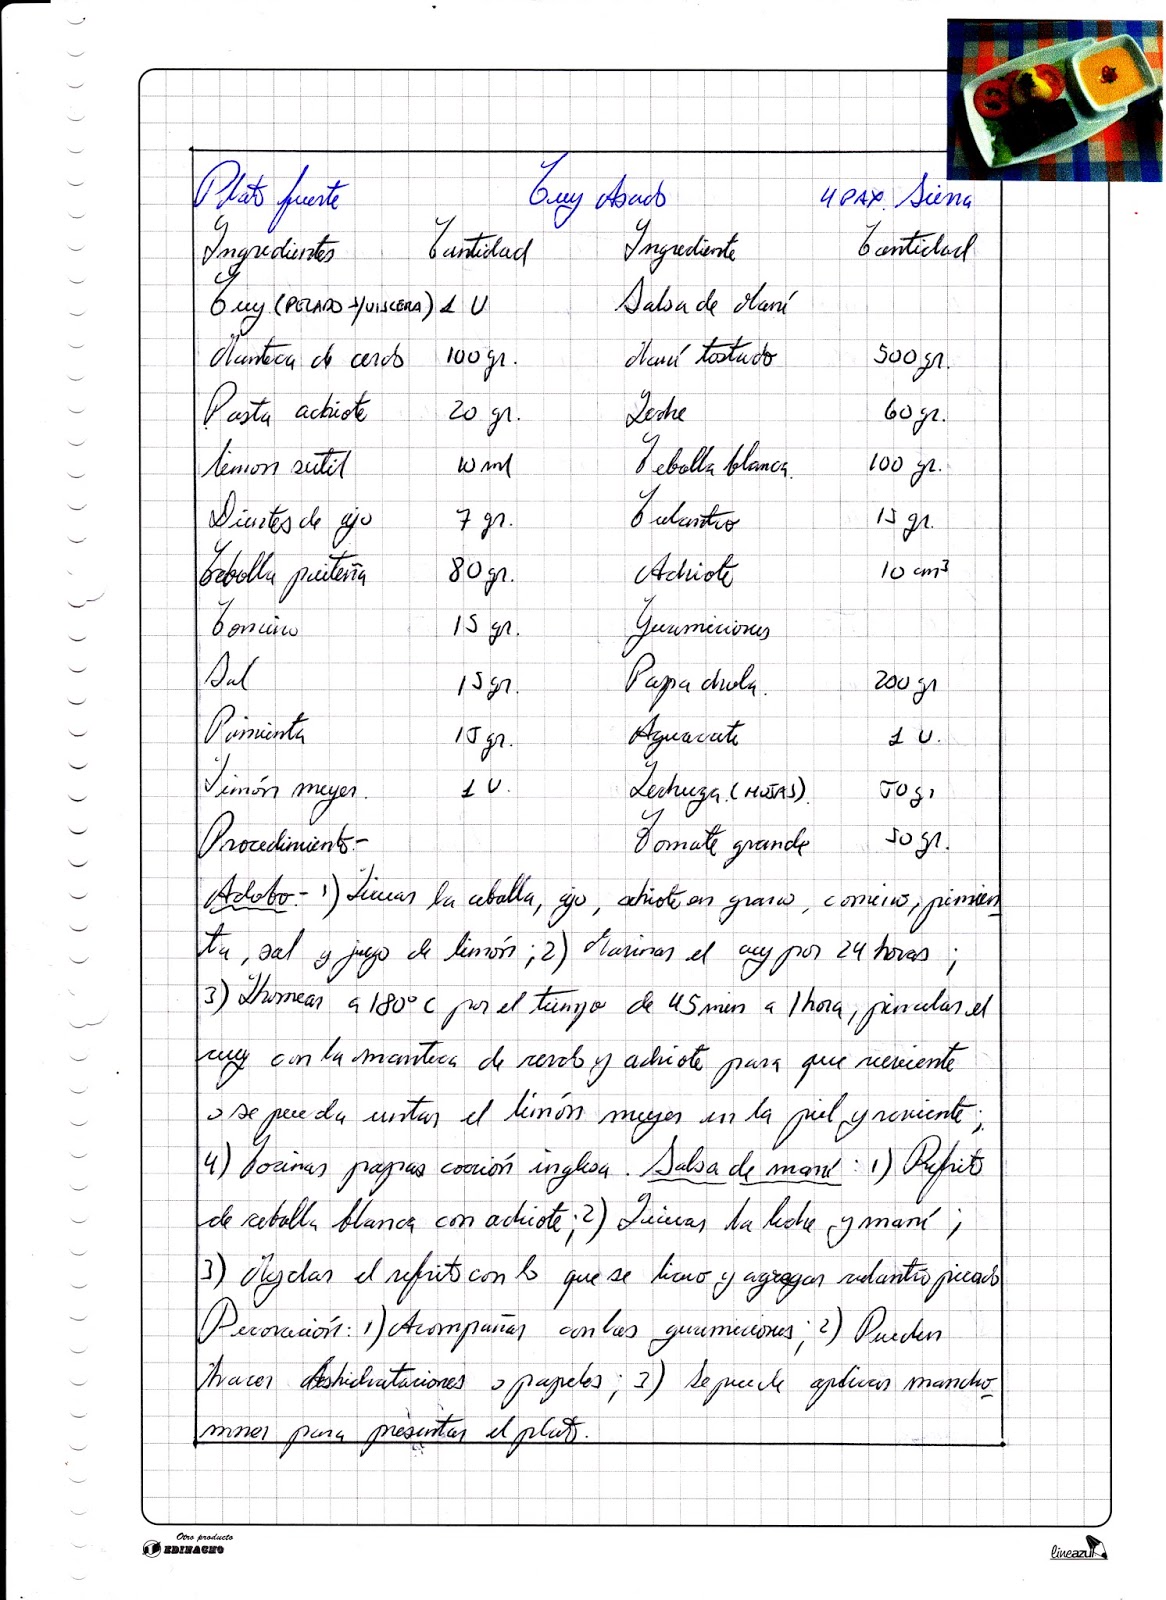 Plato fuerte Cuy Asado 4 PAX. Sierra
Ingredientes Cantidad Ingrediente Cantidad
Cuy (PELADO S/VISCERA) 1 U Salsa de Maní
Manteca de cerdo 100 gr. Maní tostado 500 gr.
Pasta achiote 20 gr. Leche 60 gr.
limon sutil 10 ml Cebolla blanca. 100 gr.
Dientes de ajo 7 gr. Culantro 15 gr.
Cebolla paiteña 80 gr. Achiote 10 cm³
Comino 15 gr. Guarniciones
Sal 15 gr. Papa chola. 200 gr
Pimienta 15 gr. Aguacate 1 U.
Limón meyer. 1 U. Lechuga (HOJAS). 50 gr
Procedimiento.- Tomate grande 50 gr.
Adobo.- 1) Licuar la cebolla, ajo, achiote en grano, comino, pimien
ta, sal y jugo de limón; 2) Marinar el cuy por 24 horas;
3) Hornear a 180° C por el tiempo de 45 min a 1 hora, pincelar el
cuy con la manteca de cerdo y achiote para que reviente
o se pueda untar el limón meyer en la piel y reviente;
4) Cocinar papas cocción inglesa. Salsa de maní: 1) Refrito
de cebolla blanca con achiote; 2) Licuar la leche y maní;
3) Mezclar el refrito con lo que se licuo y agregar culantro picado
Decoración: 1) Acompañar con las guarniciones; 2) Pueden
hacer deshidrataciones o papeles; 3) Se puede aplicar mancho
nnes para presentar el plato.
Otro producto
EDINACHO
lineazul